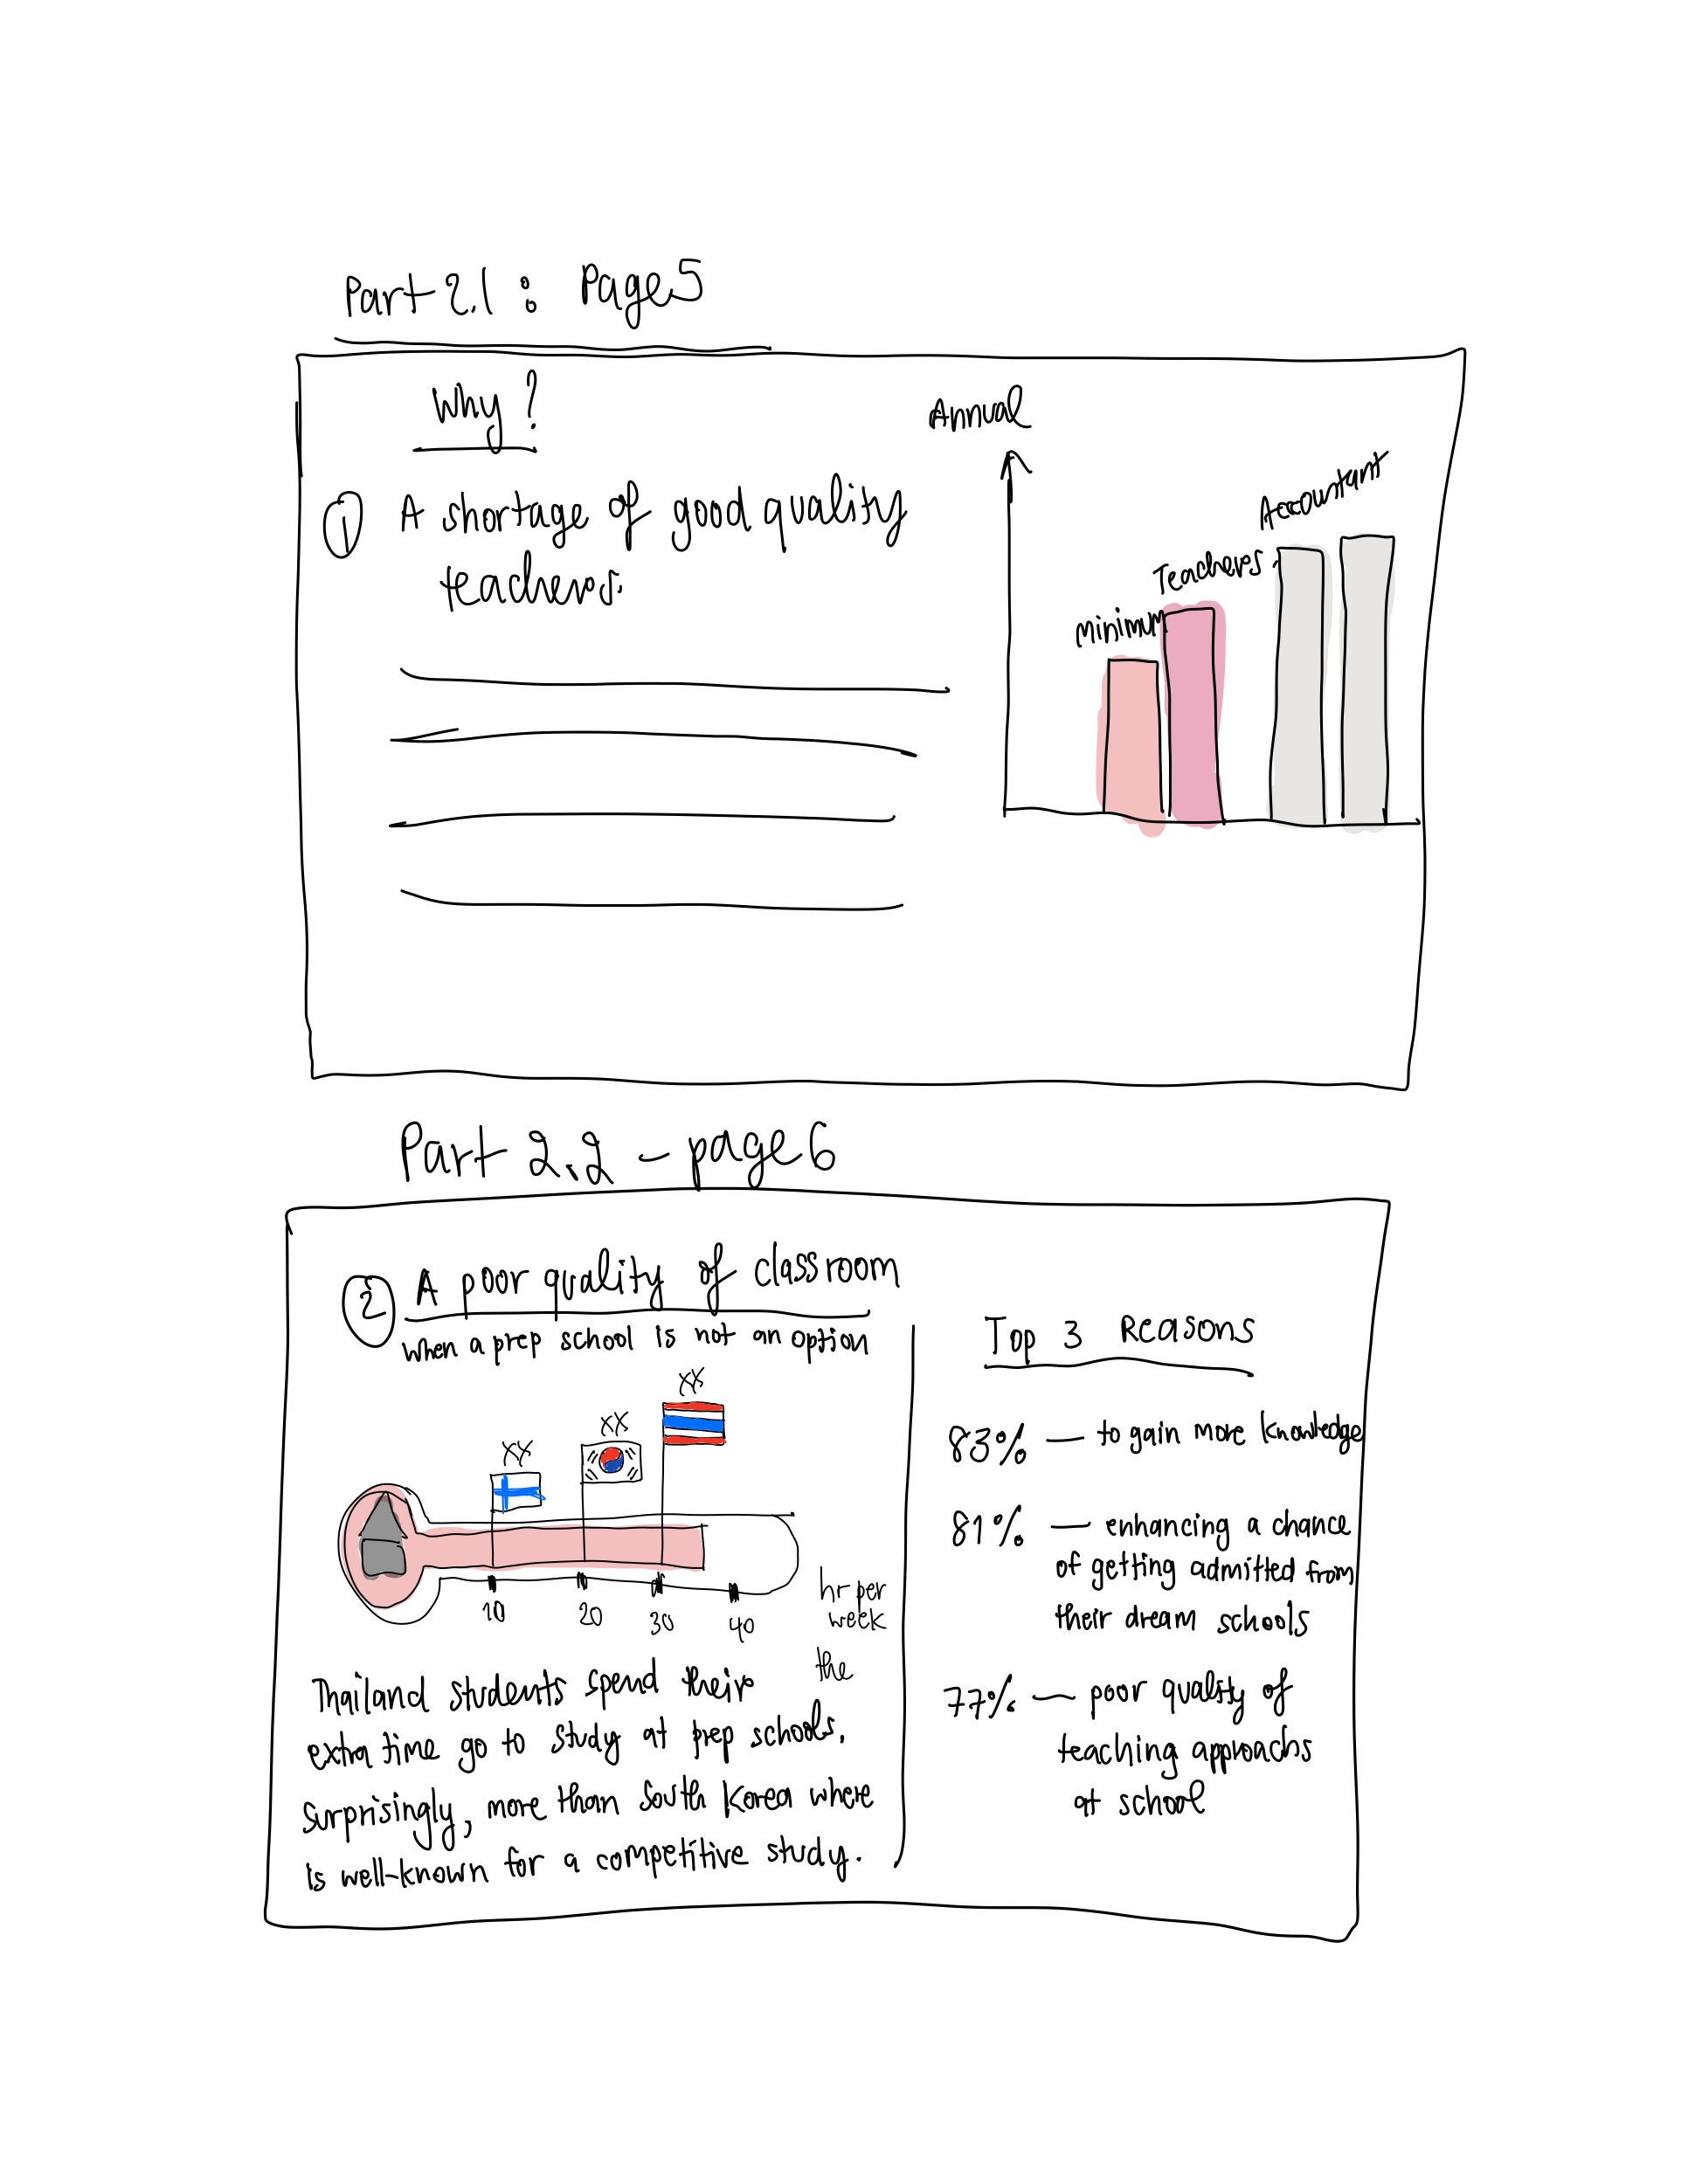 Part 2.1 : Page 5
Why?
1 A shortage of good quality
teachers.
Annual
Minimum
Teachers
Accountant
Part 2.2 - page 6
2 A poor quality of classroom
when a prep school is not an option
XX
XX
XX
10 20 30 40
hr per
week
the
Thailand students spend their
extra time go to study at prep schools.
surprisingly, more than South Korea where
is well-known for a competitive study.
Top 3 Reasons
83% — to gain more knowledge
81% — enhancing a chance
of getting admitted from
their dream schools
77% — poor quality of
teaching approachs
at school